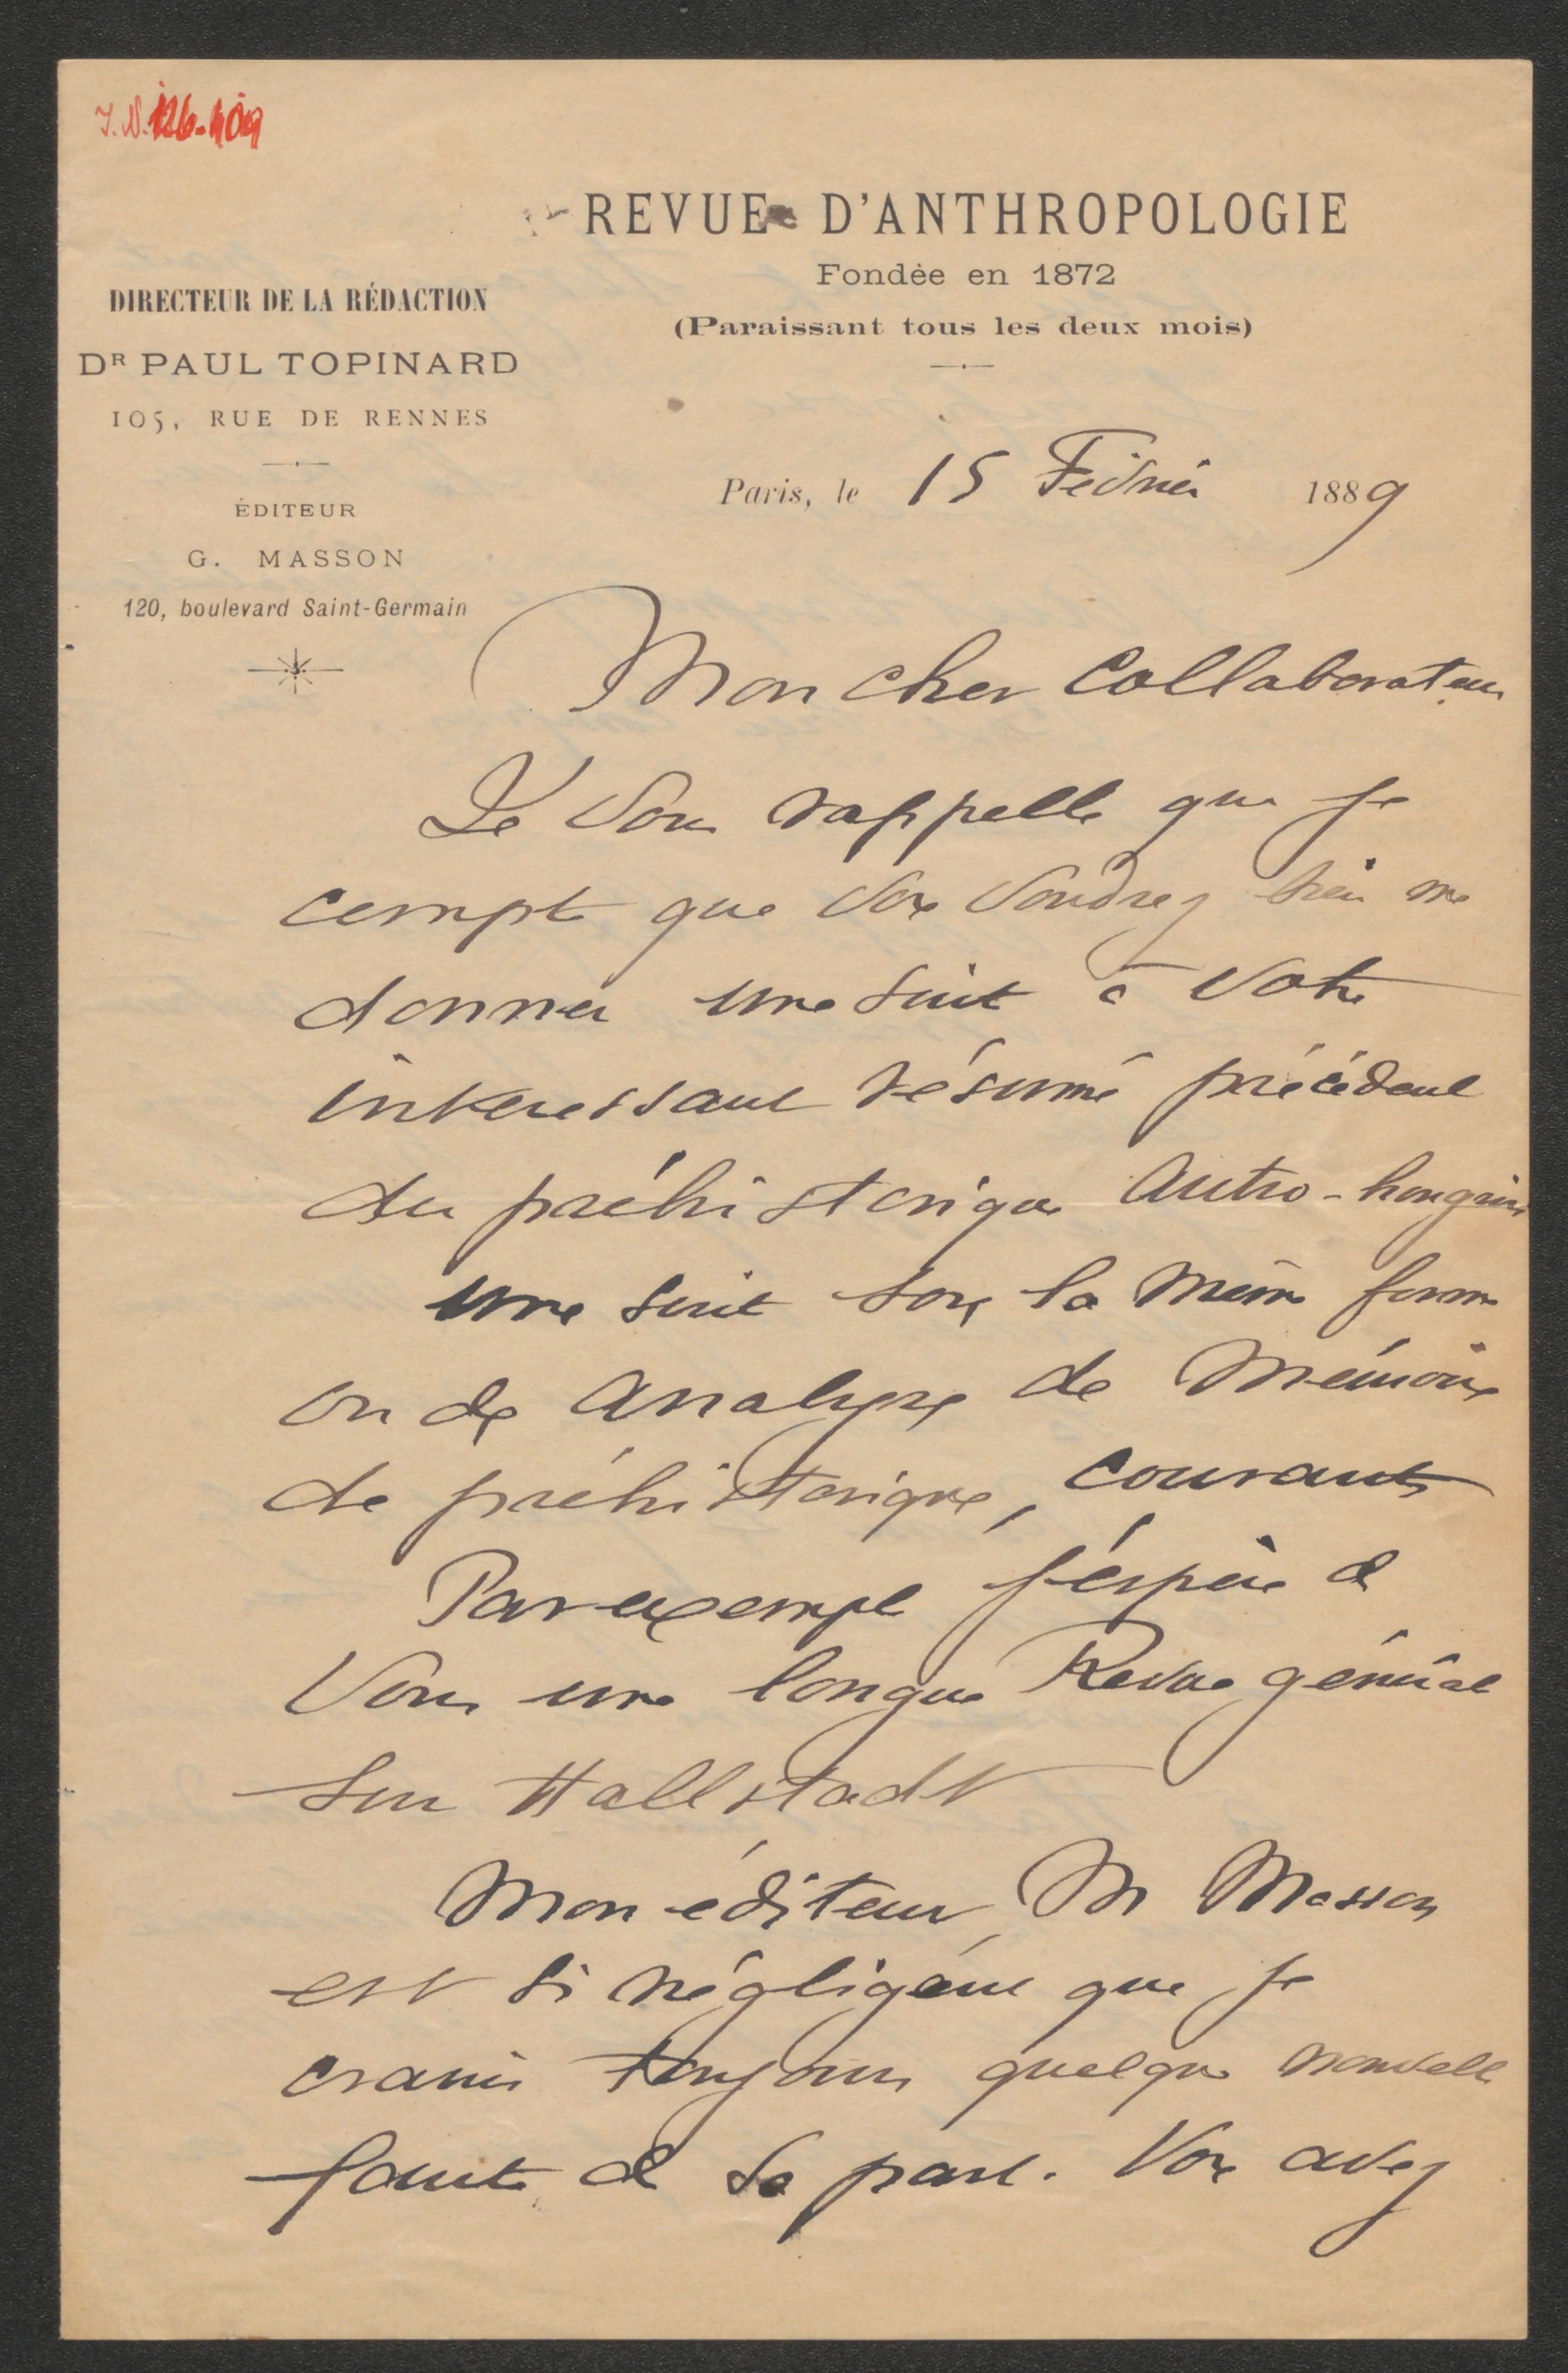 I.N. 126.409
REVUE D'ANTHROPOLOGIE
Fondée en 1872
(Paraissant tous les deux mois)
DIRECTEUR DE LA RÉDACTION
DR PAUL TOPINARD
105, RUE DE RENNES
ÉDITEUR
G. MASSON
120, boulevard Saint-Germain
Paris, le 15 Février 1889
Mon cher Collaborateur
Je vous rappelle que je
compte que vous voudrez bien me
donner une suite à votre
interessant résumé précédent
du préhistorique Autro-hongrois
une suite sous la même forme
ou des analyses de Mémoires
de préhistorique, courants
Par exemple j'éspère de
Vous une longue Revue générale
sur Hallstadt
Mon éditeur, M Masson
est si négligent que je
crains toujours quelque nouvelle
faute de sa part. Vous avez